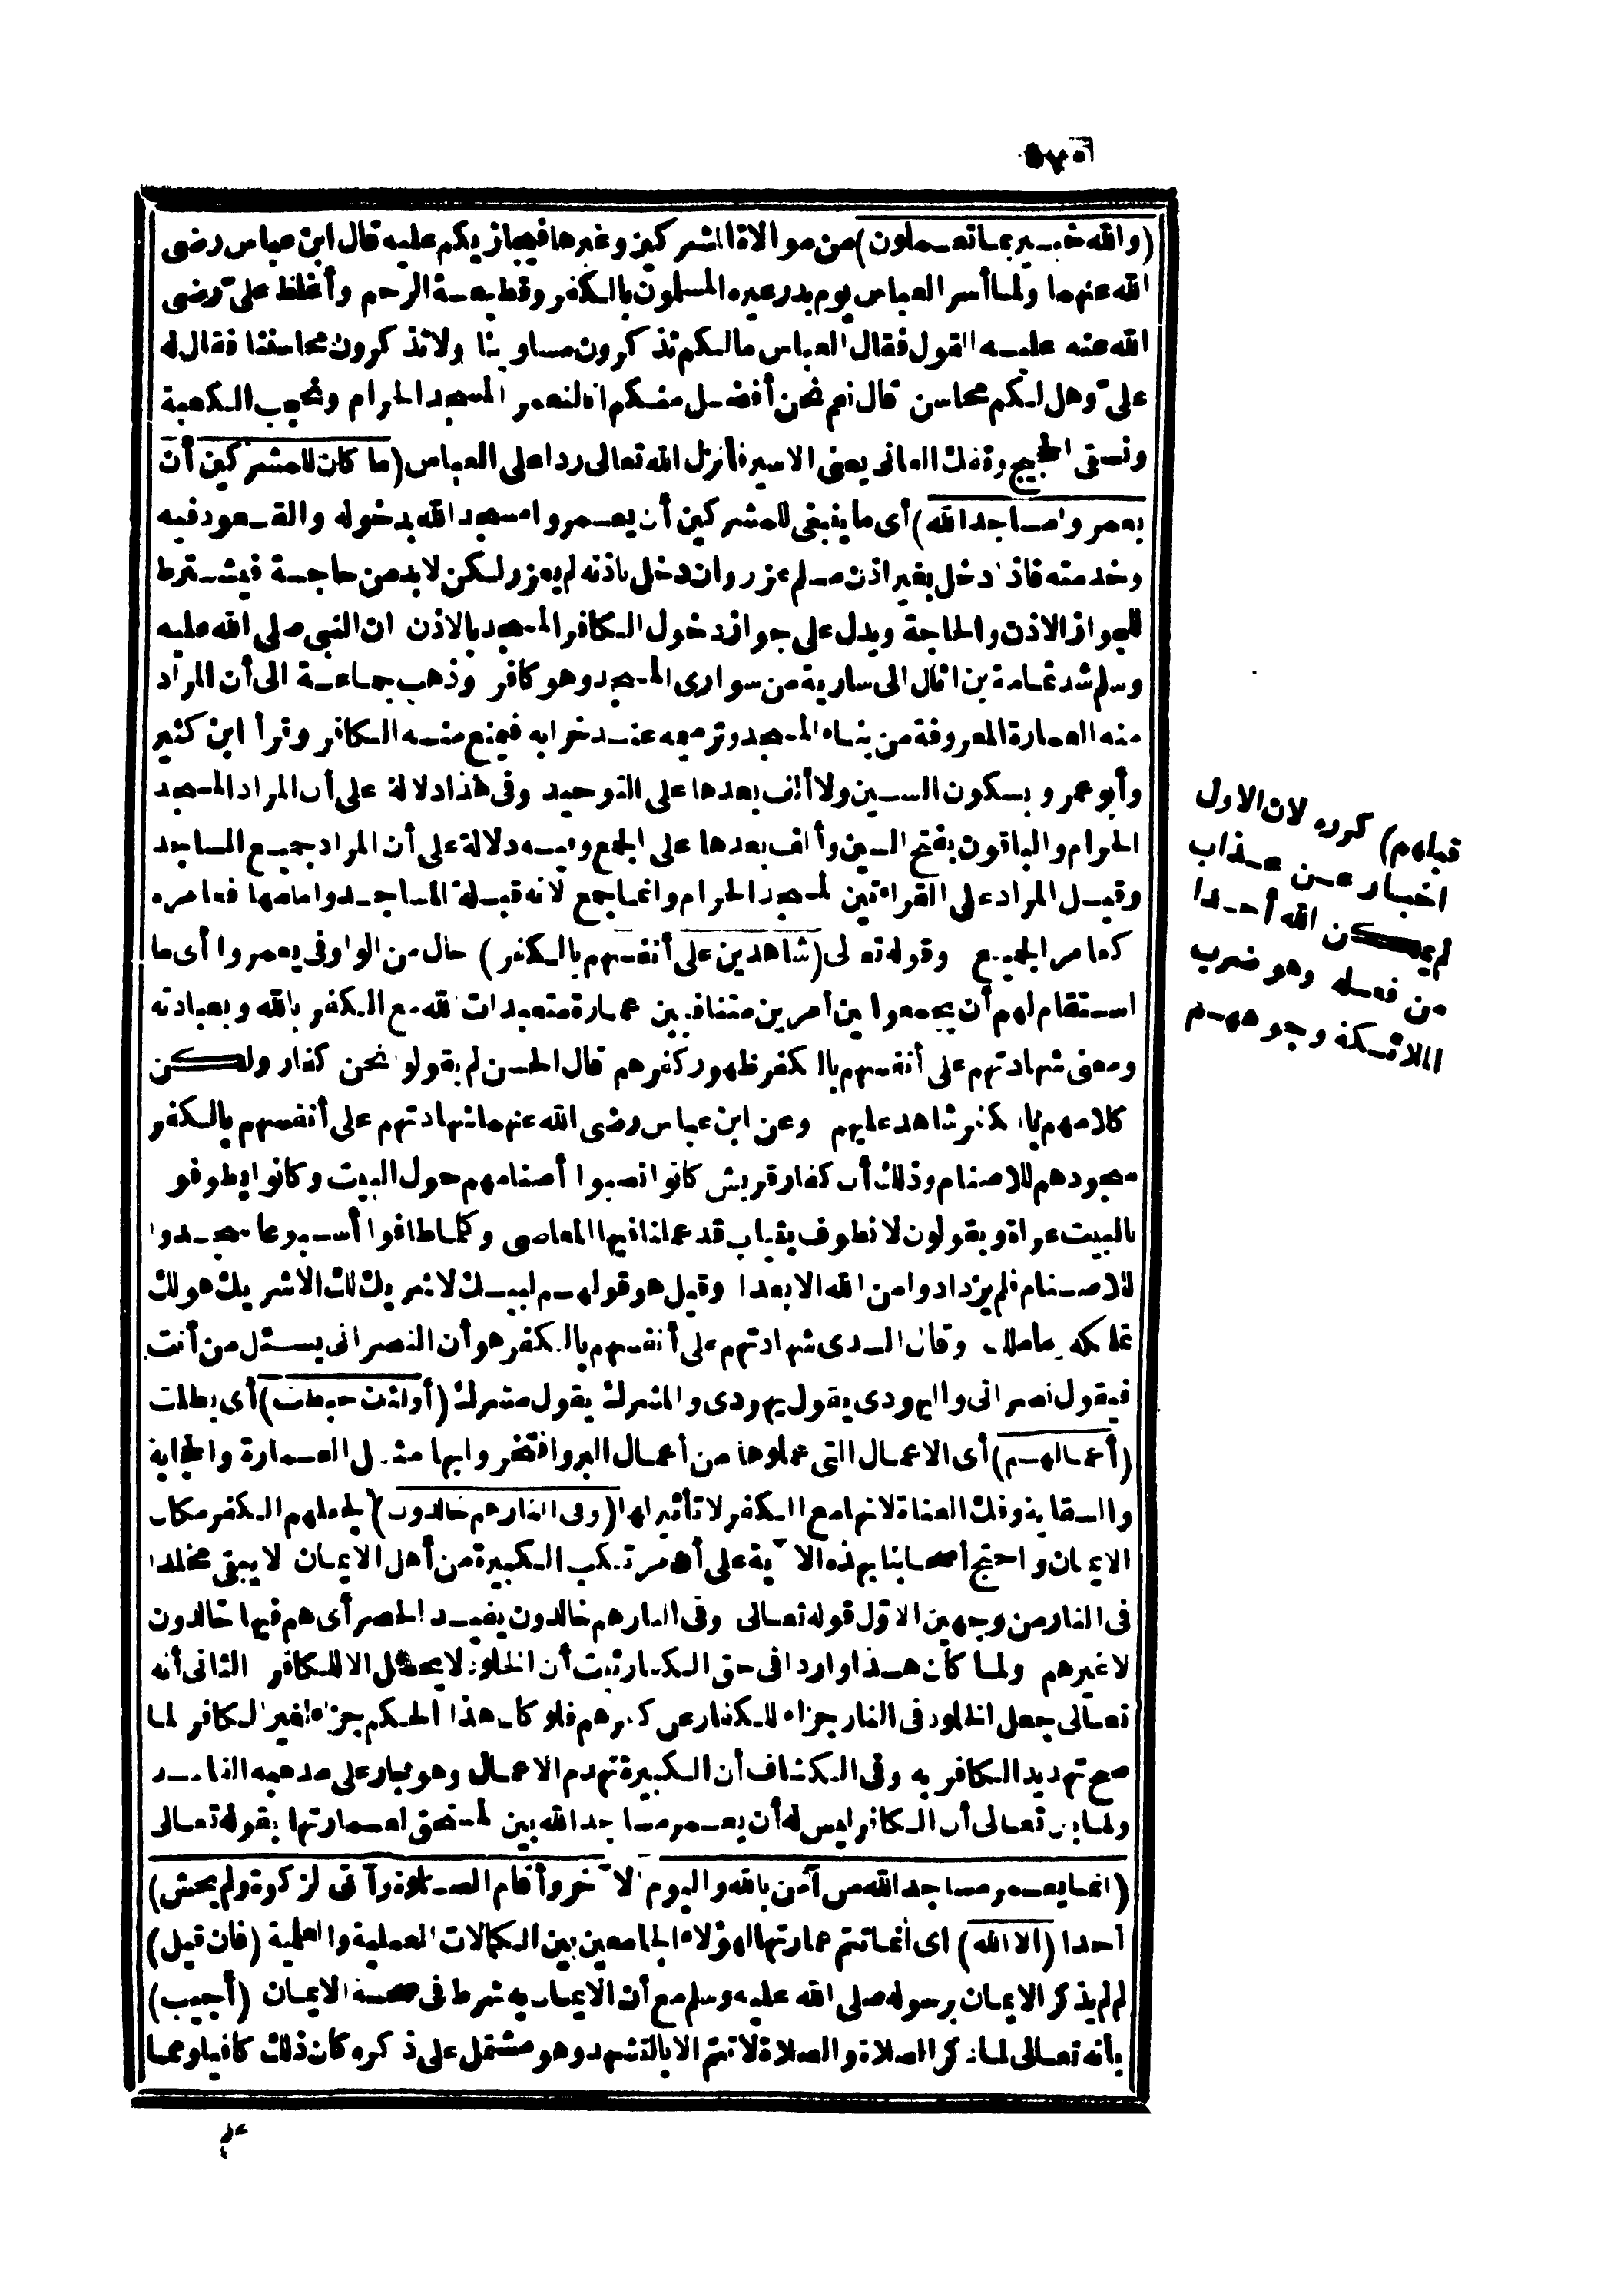 ٥٧٥
(والله خبير بما تعملون) من موالاة المشركين وغيرها فيجازيكم عليه قال ابن عباس رضى
الله عنهما ولما أسر العباس يوم بدر عيره المسلمون بالكفر وقطيعة الرحم وأغلظ علىّ رضى
الله عنه عليه القول فقال العباس مالكم تذكرون مساوينا ولا تذكرون محاسننا فقال له
علىّ وهل لكم محاسن قال نعم نحن أفضل منكم انا لنعمر المسجد الحرام ونحجب الكعبة
ونسقى الحجيج ونفك العانى يعنى الاسير فأنزل الله تعالى ردا على العباس (ما كان للمشركين أن
يعمروا مساجد الله) أى ما ينبغى للمشركين أن يعمروا مسجد الله بدخوله والقعود فيه
وخدمته فاذا دخل بغير اذن مسلم عزر وان دخل باذنه لم يعزر لكن لابد من حاجة فيشترط
للجواز الاذن والحاجة ويدل على جواز دخول الكافر المسجد بالاذن ان النبى صلى الله عليه
وسلم شد ثمامة بن اثال الى سارية من سوارى المسجد وهو كافر وذهب جماعة الى أن المراد
منه العمارة المعروفة من بناء المسجد وترميمه عند خرابه فيمنع منه الكافر وقرأ ابن كثير
وأبو عمرو بسكون السين ولا ألف بعدها على التوحيد وفى هذا دلالة على أن المراد المسجد
الحرام والباقون بفتح السين وألف بعدها على الجمع وفيه دلالة على أن المراد جميع المساجد
وقيل المراد على القراءتين المسجد الحرام وانما جمع لانه قبلة المساجد وامامها فعامره
كعامر الجميع وقوله تعالى (شاهدين على أنفسهم بالكفر) حال من الواو فى يعمروا أى ما
استقام لهم أن يجمعوا بين أمرين متنافيين عمارة متعبدات الله مع الكفر بالله وبعبادته
ومعنى شهادتهم على أنفسهم بالكفر ظهور كفرهم قال الحسن لم يقولوا نحن كفار ولكن
كلامهم بالكفر شاهد عليهم وعن ابن عباس رضى الله عنهما شهادتهم على أنفسهم بالكفر
سجودهم للاصنام وذلك أن كفار قريش كانوا نصبوا أصنامهم حول البيت وكانوا يطوفو
بالبيت عراة ويقولون لا نطوف بثياب قد عملنا فيها المعاصى وكلما طافوا أسبوعا سجدوا
للاصنام فلم يزدادوا من الله الا بعدا وقيل هو قولهم لبيك لا شريك لك الا شريك هو لك
تملكه وما ملك وقال السدى شهادتهم على أنفسهم بالكفر هو أن النصرانى يسئل من أنت
فيقول نصرانى واليهودى يقول يهودى والمشرك يقول مشرك (أولئك حبطت) أى بطلت
(أعمالهم) أى الاعمال التى عملوها من أعمال البر وافتخروا بها مثل العمارة والحجابة
والسقاية وفك العناة لانها مع الكفر لا تأثير لها (وفى النار هم خالدون) لجعلهم الكفر مكان
الايمان واحتج أصحابنا بهذه الآية على أن مرتكب الكبيرة من أهل الايمان لا يبقى مخلدا
فى النار من وجهين الاوّل قوله تعالى وفى النار هم خالدون يفيد الحصر أى هم فيها خالدون
لا غيرهم ولما كان هذا واردا فى حق الكفار ثبت أن الخلود لا يحصل الا للكافر الثانى أنه
تعالى جعل الخلود فى النار جزاء للكفار عن كفرهم فلو كان هذا الحكم جزاء لغير الكافر لما
صح تهديد الكافر به وفى الكشاف أن الكبيرة تهدم الاعمال وهو جار على مذهبه الفاسد
ولما بين تعالى أن الكافر ليس له أن يعمر مساجد الله بين المستحق لعمارتها بقوله تعالى
(انما يعمر مساجد الله من آمن بالله واليوم الآخر وأقام الصلوة وآتى الزكوة ولم يخش)
أحدا (الا الله) أى انما تتم عمارتها لهؤلاء الجامعين بين الكمالات العملية والعلمية (فان قيل)
لم لم يذكر الايمان برسوله صلى الله عليه وسلم مع أن الايمان به شرط فى صحة الايمان (أجيب)
بأنه تعالى لما ذكر الصلاة والصلاة لا تتم الا بالتشهد وهو مشتمل على ذكره كان ذلك كافيا ومما
علم
قبلهم) كرره لان الاول
اخبار عن عذاب
لم يمكن الله أحدا
من فعله وهو ضرب
الملائكة وجوههم